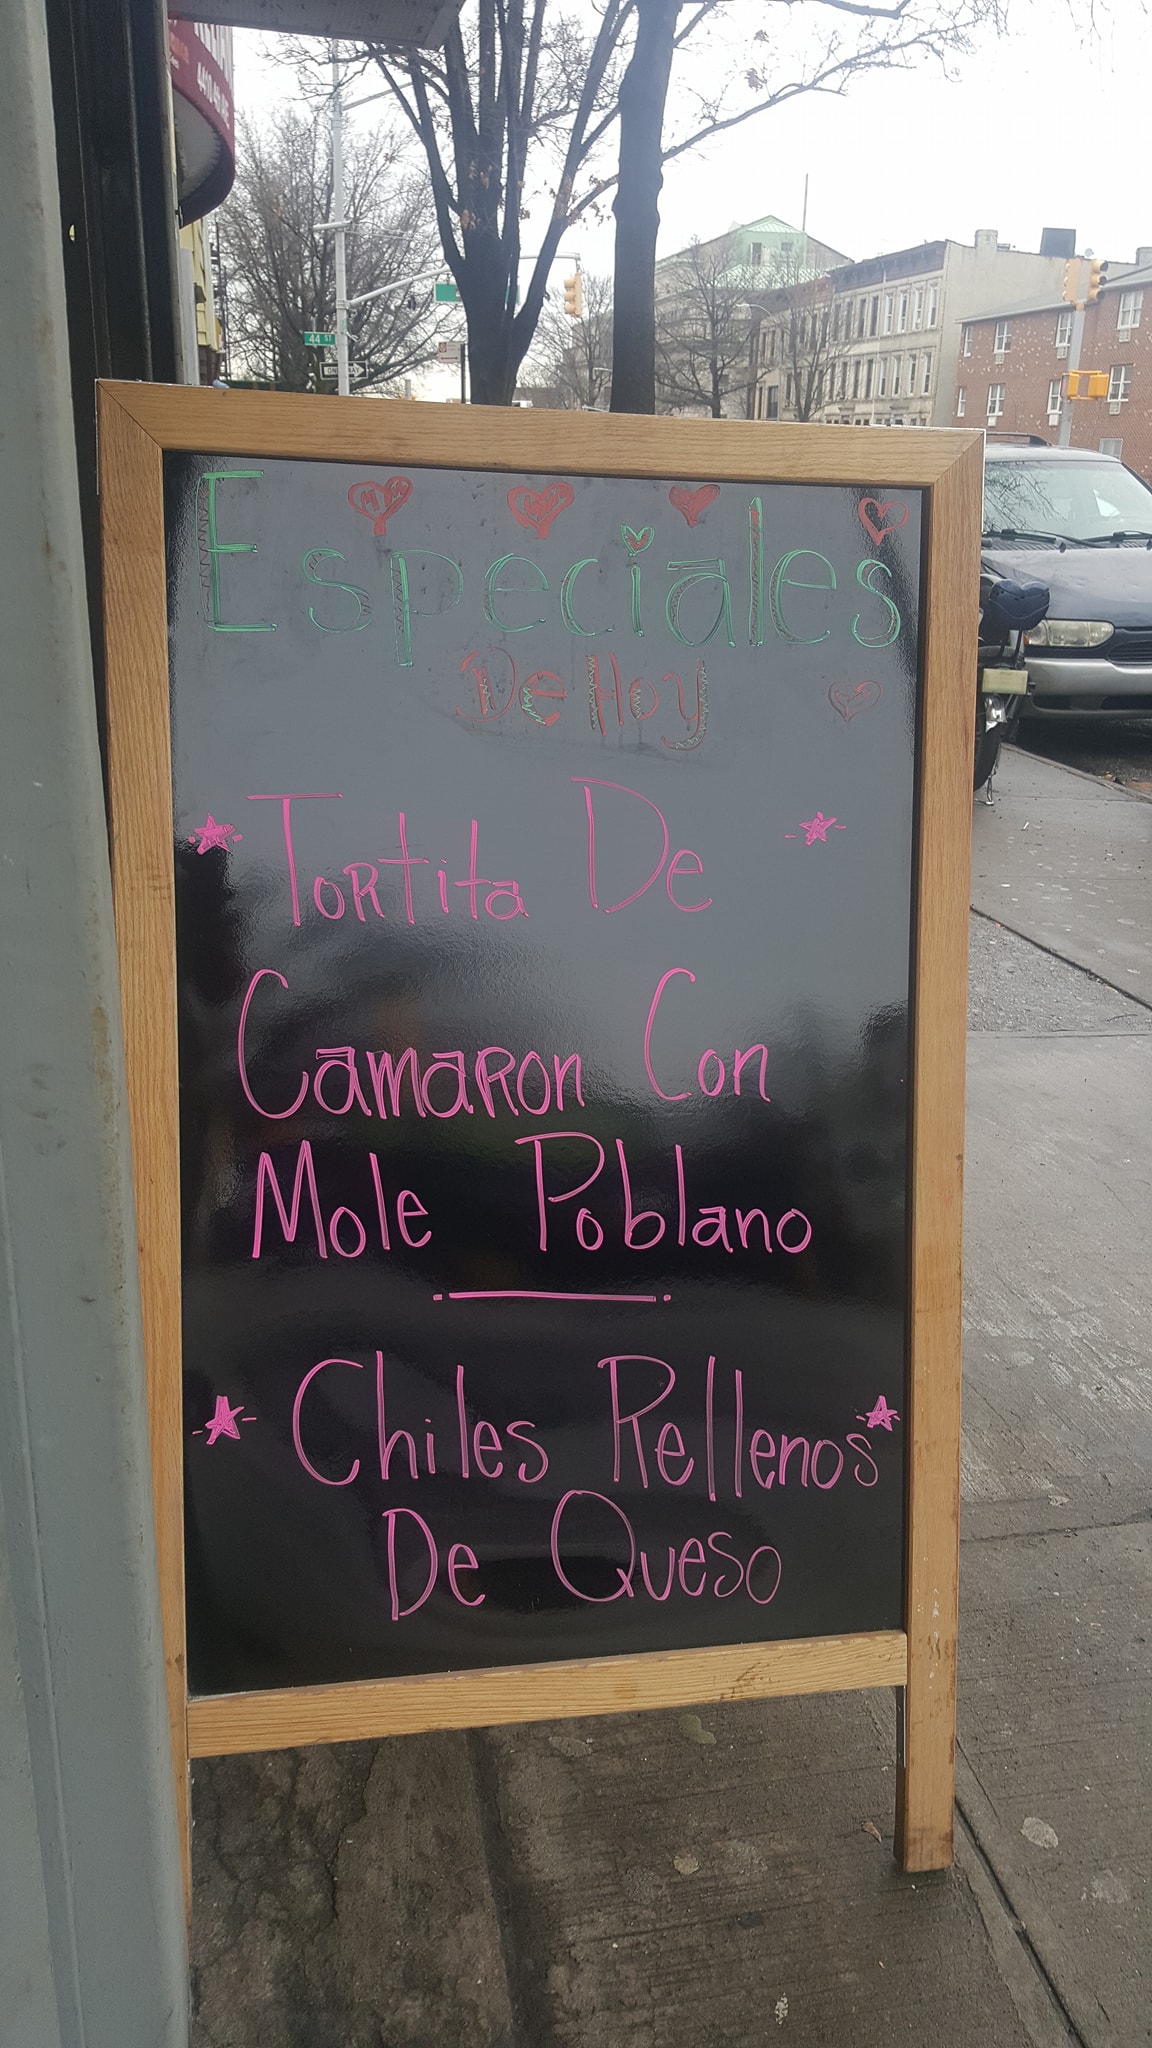 44 ST
ONE WAY
Especiales
De Hoy
Tortita De
Camaron Con
Mole Poblano
Chiles Rellenos
De Queso